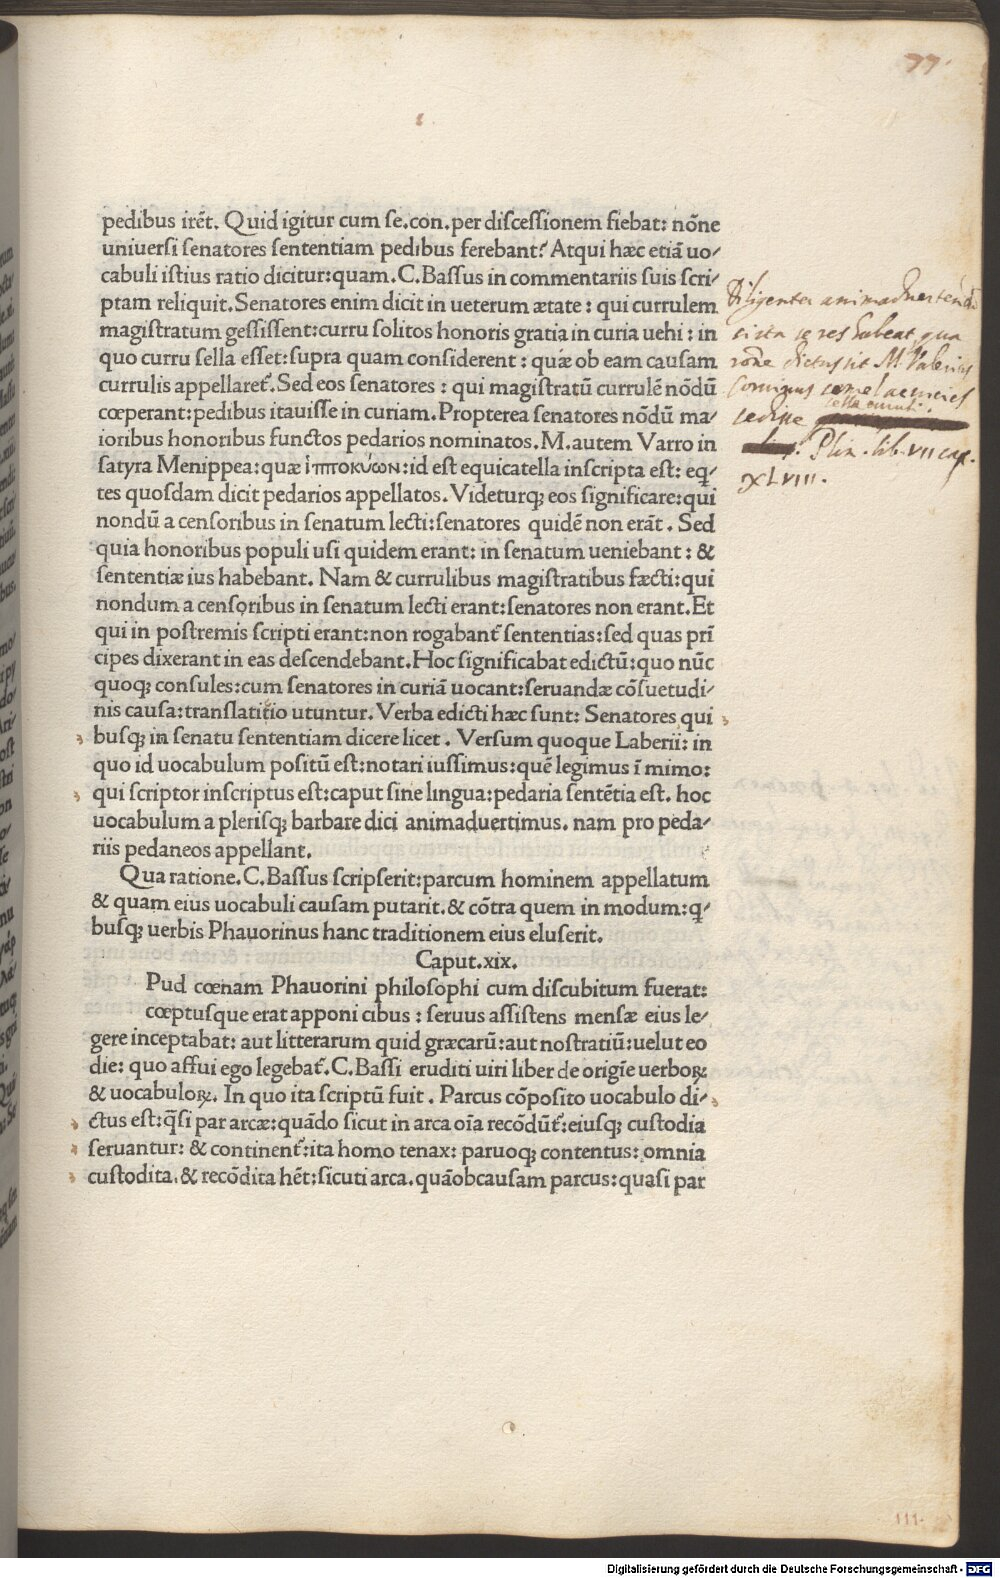 77.
pedibus irēt. Quid igitur cum se.con.per discessionem fiebat: nōne
uniuersi senatores sententiam pedibus ferebant? Atqui hæc etiā uo-
cabuli istius ratio dicitur:quam.C.Bassus in commentariis suis scri-
ptam reliquit.Senatores enim dicit in ueterum ætate: qui currulem
magistratum gessissent:curru solitos honoris gratia in curia uehi: in
quo curru sella esset:supra quam considerent: quæ ob eam causam
currulis appellaret̃.Sed eos senatores: qui magistratū currulē nōdū
cœperant:pedibus itauisse in curiam.Propterea senatores nōdū ma-
ioribus honoribus functos pedarios nominatos.M.autem Varro in
satyra Menippea:quæ ἱπποκύων:id est equicatella inscripta est: eq̃-
tes quosdam dicit pedarios appellatos.Videturqȝ eos significare:qui
nondū a censoribus in senatum lecti:senatores quidē non erāt. Sed
quia honoribus populi usi quidem erant: in senatum ueniebant: &
sententiæ ius habebant. Nam & currulibus magistratibus fæcti:qui
nondum a censoribus in senatum lecti erant:senatores non erant.Et
qui in postremis scripti erant:non rogabant̃ sententias:sed quas prī
cipes dixerant in eas descendebant.Hoc significabat edictū:quo nūc
quoqȝ consules:cum senatores in curiā uocant:seruandæ cōsuetudi-
nis causa:translatitio utuntur. Verba edicti hæc sunt: Senatores qui
busqȝ in senatu sententiam dicere licet. Versum quoque Laberii: in
quo id uocabulum positū est:notari iussimus:quē legimus ī mimo:
qui scriptor inscriptus est:caput sine lingua:pedaria sentētia est. hoc
uocabulum a plerisqȝ barbare dici animaduertimus. nam pro peda-
riis pedaneos appellant.
Qua ratione.C.Bassus scripserit:parcum hominem appellatum
& quam eius uocabuli causam putarit.& cōtra quem in modum:q̃-
busqȝ uerbis Phauorinus hanc traditionem eius eluserit.
Caput.xix.
Pud cœnam Phauorini philosophi cum discubitum fuerat:
cœptusque erat apponi cibus: seruus assistens mensæ eius le-
gere inceptabat: aut litterarum quid græcarū:aut nostratiū:uelut eo
die: quo affui ego legebat̃.C.Bassi eruditi uiri liber de origīe uerboꝝ
& uocabuloꝝ. In quo ita scriptū fuit. Parcus cōposito uocabulo di-
ctus est:q̃si par arcæ:quādo sicut in arca oīa recōdūt̃:eiusqȝ custodia
seruantur: & continent̃:ita homo tenax: paruoqȝ contentus: omnia
custodita.& recōdita hēt:sicuti arca.quāobcausam parcus:quasi par
Diligenter
res habeat, qua
rōne dictus sit M. Valerius
Coruinus semel ac uicies
sedisse
sella curuli.
Plin. lib. VII cap.
XLVIII.
111.
Digitalisierung gefördert durch die Deutsche Forschungsgemeinschaft - DFG